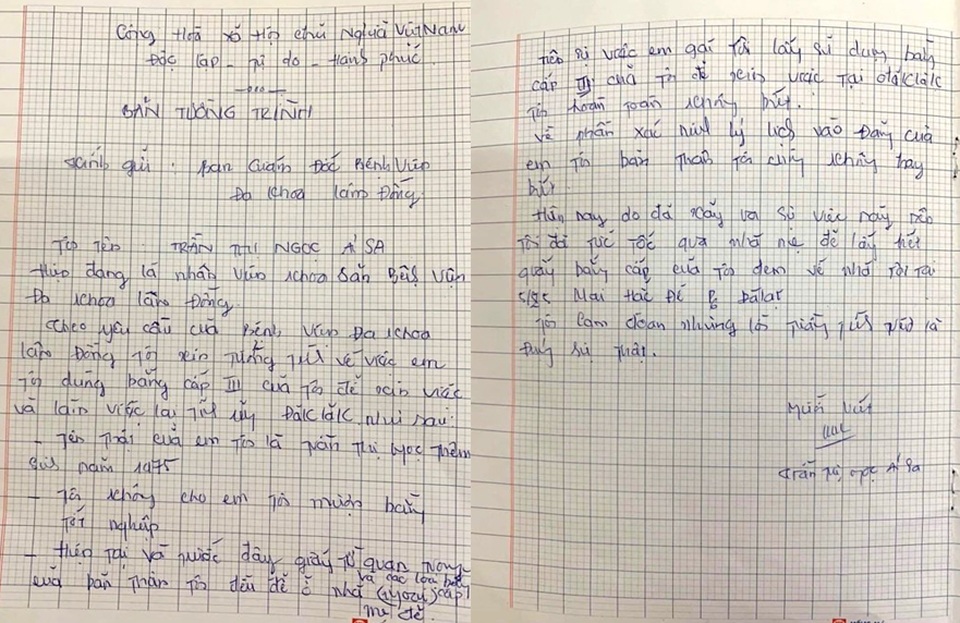 Cộng Hoà xã Hội chủ Nghĩa Việt Nam
Độc lập - Tự do - Hạnh phúc.
BẢN TƯỜNG TRÌNH
Kính gửi: Ban Giám Đốc Bệnh Viện
Đa khoa Lâm Đồng.
Tôi Tên: TRẦN THỊ NGỌC ÁI SA
Hiện đang là nhân viên khoa Sản Bệnh Viện
Đa khoa Lâm Đồng.
Theo yêu cầu của Bệnh Viện Đa khoa
Lâm Đồng Tôi xin Tường Trình về việc em
Tôi dùng bằng cấp III của Tôi để xin việc
và làm việc tại Tỉnh ủy ĐăkLăk như sau:
- Tên Thật của em Tôi là Trần Thị Ngọc Thêm
Sinh năm 1975
- Tôi không cho em Tôi mượn bằng
Tốt nghiệp
- Hiện Tại và trước đây giấy Tờ quan Trọng
và các loại bằng
của bản Thân Tôi đều để ở nhà cấp
mẹ đẻ.
sự việc em gái Tôi lấy sử dụng bằng
cấp III của Tôi để xin việc Tại ĐăkLăk
Tôi hoàn toàn không biết.
Về phần xác minh lý lịch vào Đảng của
em Tôi bản Thân Tôi cũng không hay
biết.
Hiện nay do đã xảy ra sự việc này nên
Tôi đã tức Tốc qua nhà mẹ để lấy hết
giấy bằng cấp của Tôi đem về nhà Tôi Tại
Mai Hắc Đế Đàlạt
Tôi Cam đoan những lời Trình trên là
Đúng sự Thật.
Người viết
Trần Thị Ngọc Ái Sa